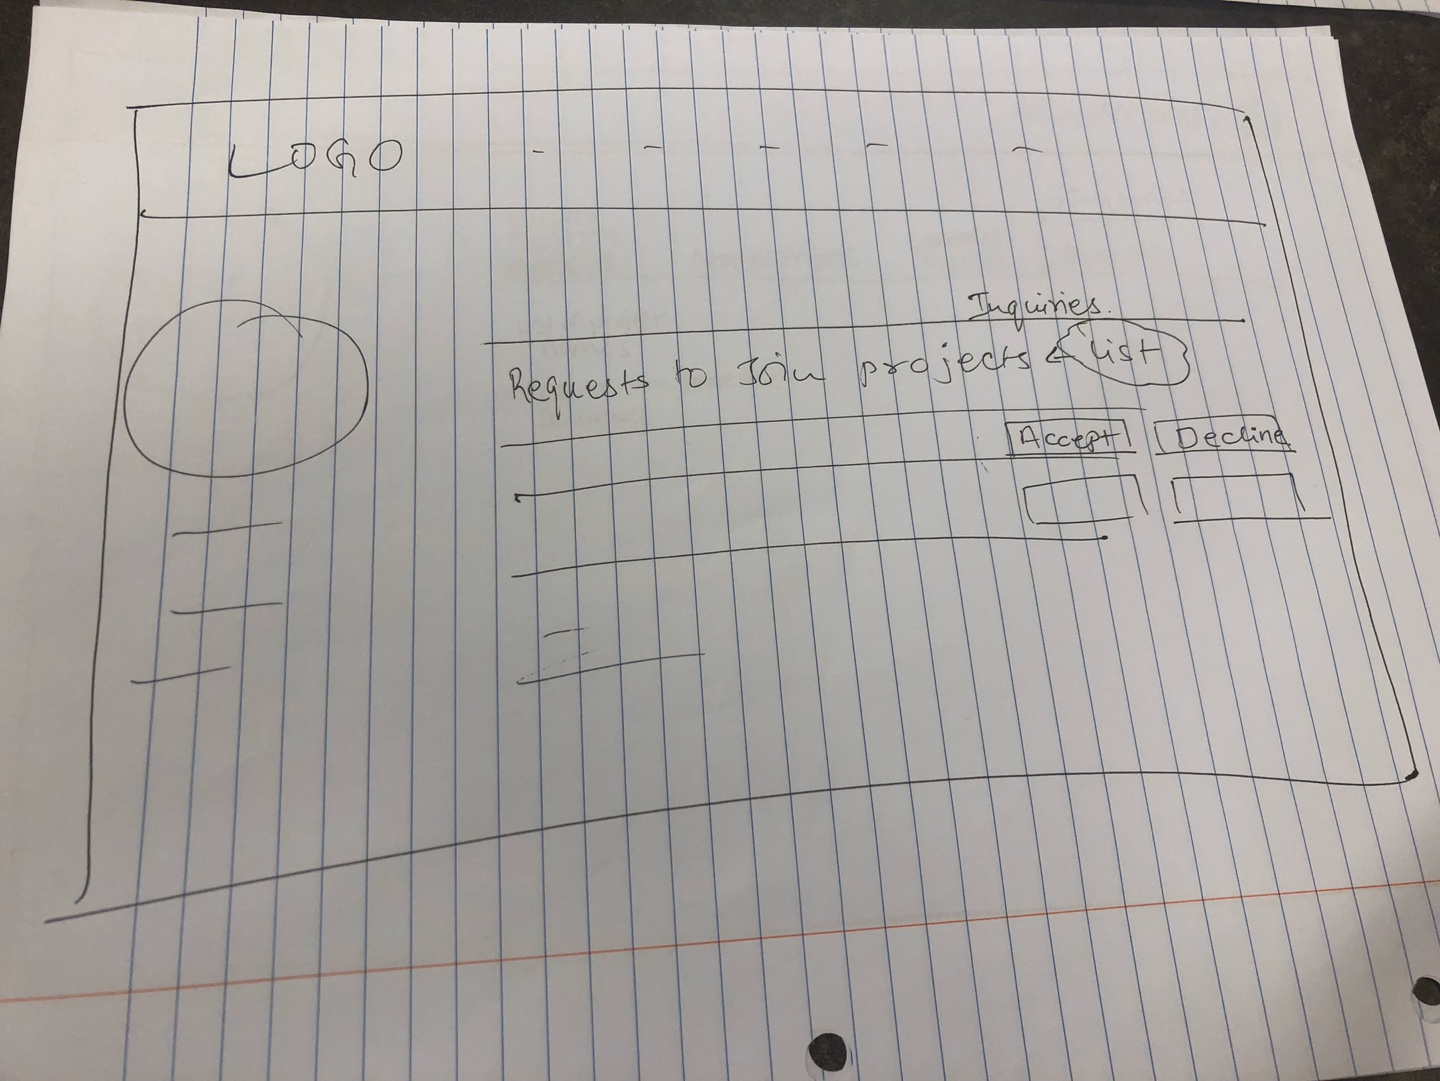 LOGO
Inquiries.
Requests to Join projects ← list
Accept Decline